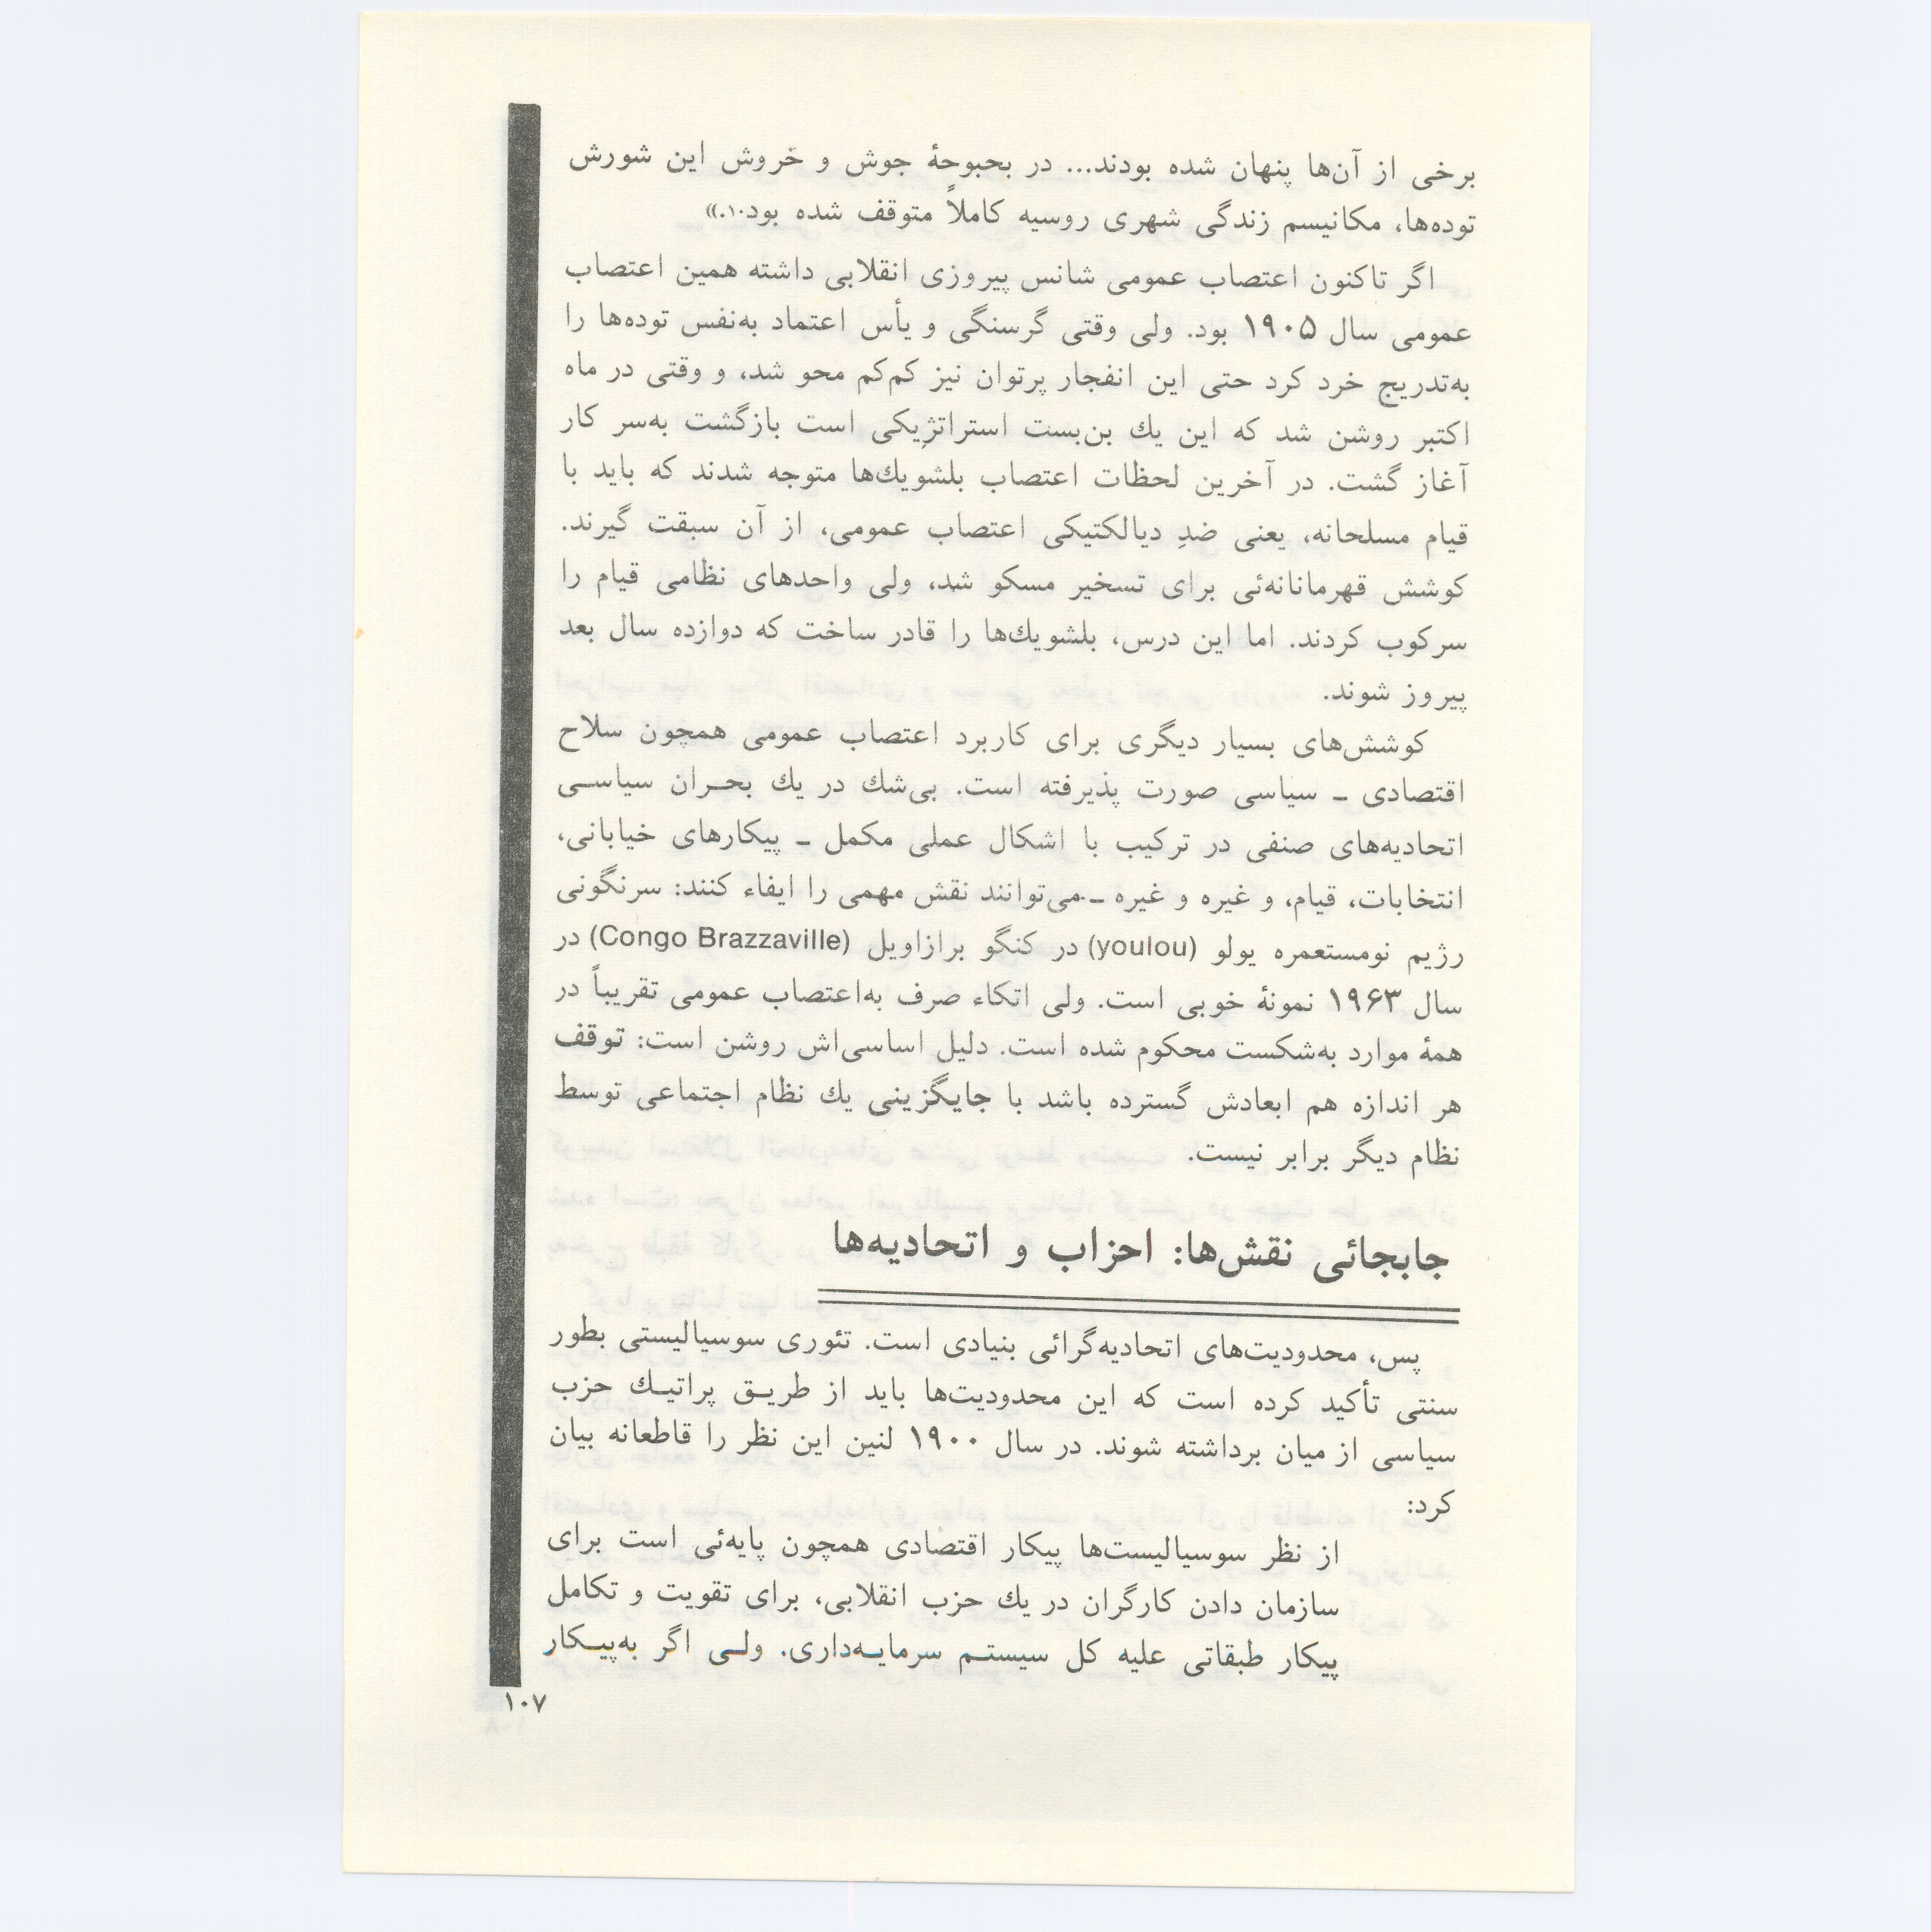 برخی از آن‌ها پنهان شده بودند... در بحبوحهٔ جوش و خروش این شورش
توده‌ها، مکانیسم زندگی شهری روسیه کاملاً متوقف شده بود۱۰.»
اگر تاکنون اعتصاب عمومی شانس پیروزی انقلابی داشته همین اعتصاب
عمومی سال ۱۹۰۵ بود. ولی وقتی گرسنگی و یأس اعتماد به‌نفس توده‌ها را
به‌تدریج خرد کرد حتی این انفجار پرتوان نیز کم‌کم محو شد، و وقتی در ماه
اکتبر روشن شد که این یك بن‌بست استراتژیکی است بازگشت به‌سر کار
آغاز گشت. در آخرین لحظات اعتصاب بلشویك‌ها متوجه شدند که باید با
قیام مسلحانه، یعنی ضدِ دیالکتیکی اعتصاب عمومی، از آن سبقت گیرند.
کوشش قهرمانانه‌ئی برای تسخیر مسکو شد، ولی واحدهای نظامی قیام را
سرکوب کردند. اما این درس، بلشویك‌ها را قادر ساخت که دوازده سال بعد
پیروز شوند.
کوشش‌های بسیار دیگری برای کاربرد اعتصاب عمومی همچون سلاح
اقتصادی ـ سیاسی صورت پذیرفته است. بی‌شك در یك بحـران سیاسـی
اتحادیه‌های صنفی در ترکیب با اشکال عملی مکمل ـ پیکارهای خیابانی،
انتخابات، قیام، و غیره و غیره ـ می‌توانند نقش مهمی را ایفاء کنند: سرنگونی
رژیم نومستعمره یولو (youlou) در کنگو برازاویل (Congo Brazzaville) در
سال ۱۹۶۳ نمونهٔ خوبی است. ولی اتکاء صرف به‌اعتصاب عمومی تقریباً در
همهٔ موارد به‌شکست محکوم شده است. دلیل اساسی‌اش روشن است: توقف
هر اندازه هم ابعادش گسترده باشد با جایگزینی یك نظام اجتماعی توسط
نظام دیگر برابر نیست.
جابجائی نقش‌ها: احزاب و اتحادیه‌ها
پس، محدودیت‌های اتحادیه‌گرائی بنیادی است. تئوری سوسیالیستی بطور
سنتی تأکید کرده است که این محدودیت‌ها باید از طریـق پراتیـك حزب
سیاسی از میان برداشته شوند. در سال ۱۹۰۰ لنین این نظر را قاطعانه بیان
کرد:
از نظر سوسیالیست‌ها پیکار اقتصادی همچون پایه‌ئی است برای
سازمان دادن کارگران در یك حزب انقلابی، برای تقویت و تکامل
پیکار طبقاتی علیه کل سیستـم سرمایـه‌داری. ولـی اگر به‌پیـکار
۱۰۷